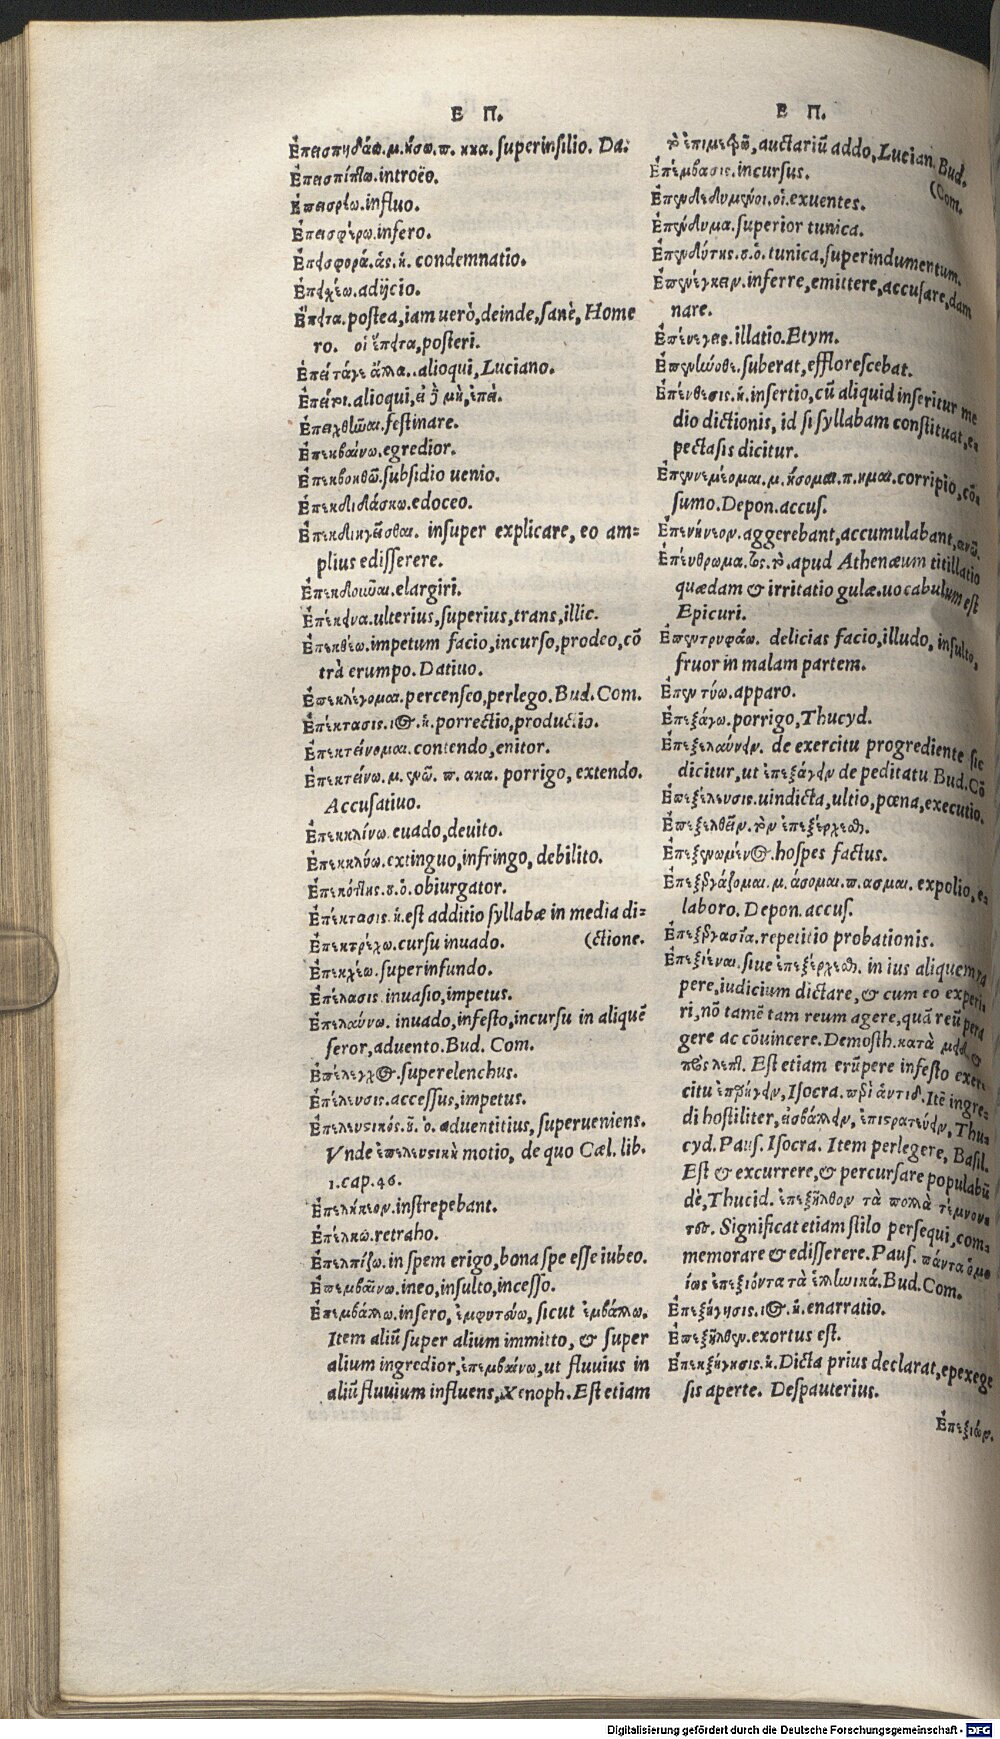 Ε Π.
Ἐπεισπηδάω.μ.ήσω.π. ηκα. superinsilio. Da:
Ἐπεισπίπτω.introëo.
Ἐπεισρέω.influo.
Ἐπεισφέρω.infero.
Ἐπεισφορά.ᾶς.ἡ. condemnatio.
Ἐπεισχέω.adijcio.
Ἔπειτα.postea,iam uerò,deinde,sanè, Home
ro. οἱ ἔπειτα,posteri.
Ἐπείτάγε ἄλλα..alioqui,Luciano.
alioqui,εἰ δὲ μὴ,ἐπεί.
Ἐπειχθῆναι.festinare.
Ἐπεκβαίνω.egredior.
Ἐπεκβοηθῶ.subsidio uenio.
Ἐπεκδιδάσκω.edoceo.
Ἐπεκδιηγεῖσθαι. insuper explicare, eo am=
plius edisserere.
elargiri.
Ἐπέκεινα.ulterius,superius,trans,illic.
Ἐπεκθέω.impetum facio,incurso,prodeo,cō
trà erumpo.Datiuo.
Ἐπεκλέγομαι.percenseo,perlego.Bud.Com.
Ἐπέκτασις.ιος.ἡ.porrectio,productio.
Ἐπεκτείνομαι.contendo,enitor.
Ἐπεκτείνω.μ.ενῶ. π. ακα. porrigo, extendo.
Accusatiuo.
Ἐπεκκλίνω.euado,deuito.
Ἐπεκκλύω.extinguo,infringo,debilito.
Ἐπεκότης.ου.ὁ.obiurgator.
Ἐπέκτασις.ἡ.est additio syllabæ in media di=
Ἐπεκτρέχω.cursu inuado. (ctione.
Ἐπεκχέω.superinfundo.
Ἐπέλασις.inuasio,impetus.
Ἐπελαύνω. inuado,infesto,incursu in aliquē
feror,aduento.Bud. Com.
Ἐπέλεγχος.superelenchus.
Ἐπέλευσις.accessus,impetus.
Ἐπελευσικός.οῦ. ὁ. aduentitius, superueniens.
Vnde ἐπελευσικὴ motio, de quo Cæl. lib.
1.cap.46.
Ἐπελήκεον.instrepebant.
Ἐπέλκω.retraho.
Ἐπελπίζω.in spem erigo,bona spe esse iubeo.
Ἐπεμβαῖνω.ineo,insulto,incesso.
Ἐπεμβάλλω.insero, ἐμφυτεύω, sicut ἐμβάλλω.
Item aliū super alium immitto, & super
alium ingredior,ἐπεμβαίνω,ut fluuius in
aliū fluuium influens,Xenoph.Est etiam
Ε Π.
auctariū addo,Lucian.Bud.
Ἐπέμβασις.incursus. (Com.
Ἐπενδεδυμένοι.οἱ.exuentes.
Ἐπένδυμα.superior tunica.
Ἐπενδύτης.ου.ὁ.tunica,superindumentum.
Ἐπενέγκειν.inferre,emittere,accusare,dam
nare.
Ἐπένεγεις.illatio.Etym.
Ἐπενήνοθε.suberat,efflorescebat.
Ἐπένθεσις.ἡ.insertio,cū aliquid inseritur me
dio dictionis, id si syllabam constituat,e
pectasis dicitur.
Ἐπεννεμέομαι.μ.ήσομαι.π.ημαι.corripio,cō
sumo.Depon.accus.
Ἐπενήνεον.aggerebant,accumulabant,
Ἐπένθρωμα.τος.τὸ.apud Athenæum titillatio
quædam & irritatio gulæ.uocabulum est
Epicuri.
Ἐπεντρυφάω. delicias facio,illudo, insulto,
fruor in malam partem.
Ἐπεν τύω.apparo.
Ἐπεξάγω.porrigo,Thucyd.
Ἐπεξελαύνειν. de exercitu progrediente sic
dicitur,ut ἐπεξάγειν de peditatu Bud.Cō
Ἐπεξέλευσις.uindicta,ultio,pœna,executio.
Ἐπεξελθεῖν.τὸν ἐπεξέρχεσθαι.
Ἐπεξενωμένος.hospes factus.
Ἐπεξεργάζομαι.μ.άσομαι.π.ασμαι. expolio,e=
laboro.Depon.accus.
Ἐπεξεργασία.repetitio probationis.
Ἐπεξιέναι.siue ἐπεξέρχεσθαι. in ius aliquem ra
pere,iudicium dictare,& cum eo experi
ri,nō tamē tam reum agere,quā reū pera
gere ac cōuincere.Demosth.κατὰ μειδ. &
πρὸς λεπτ. Est etiam erūpere infesto exer
citu Isocra. περὶ ἀντιδ. Itē ingre=
di hostiliter,εἰσβάλλειν, ἐπιστρατεύειν, Thu
cyd. Paus. Isocra. Item perlegere, Basil.
Est & excurrere,& percursare populabū
dè,Thucid. ἐπεξῆλθον τὰ πολλὰ τέμνον
τες. Significat etiam stilo persequi,com=
memorare & edisserere.Paus. πάντα ὁμο
ίως ἐπεξιόντα τὰ ἑλληνικά.Bud.Com.
Ἐπεξήγησις.ιος.ἡ.enarratio.
Ἐπεξῆλθεν.exortus est.
Ἐπεκξήγησις.ἡ.Dicta prius declarat,epexege
sis aperte. Despauterius.
Ἐπεξιών.
Digitalisierung gefördert durch die Deutsche Forschungsgemeinschaft - DFG